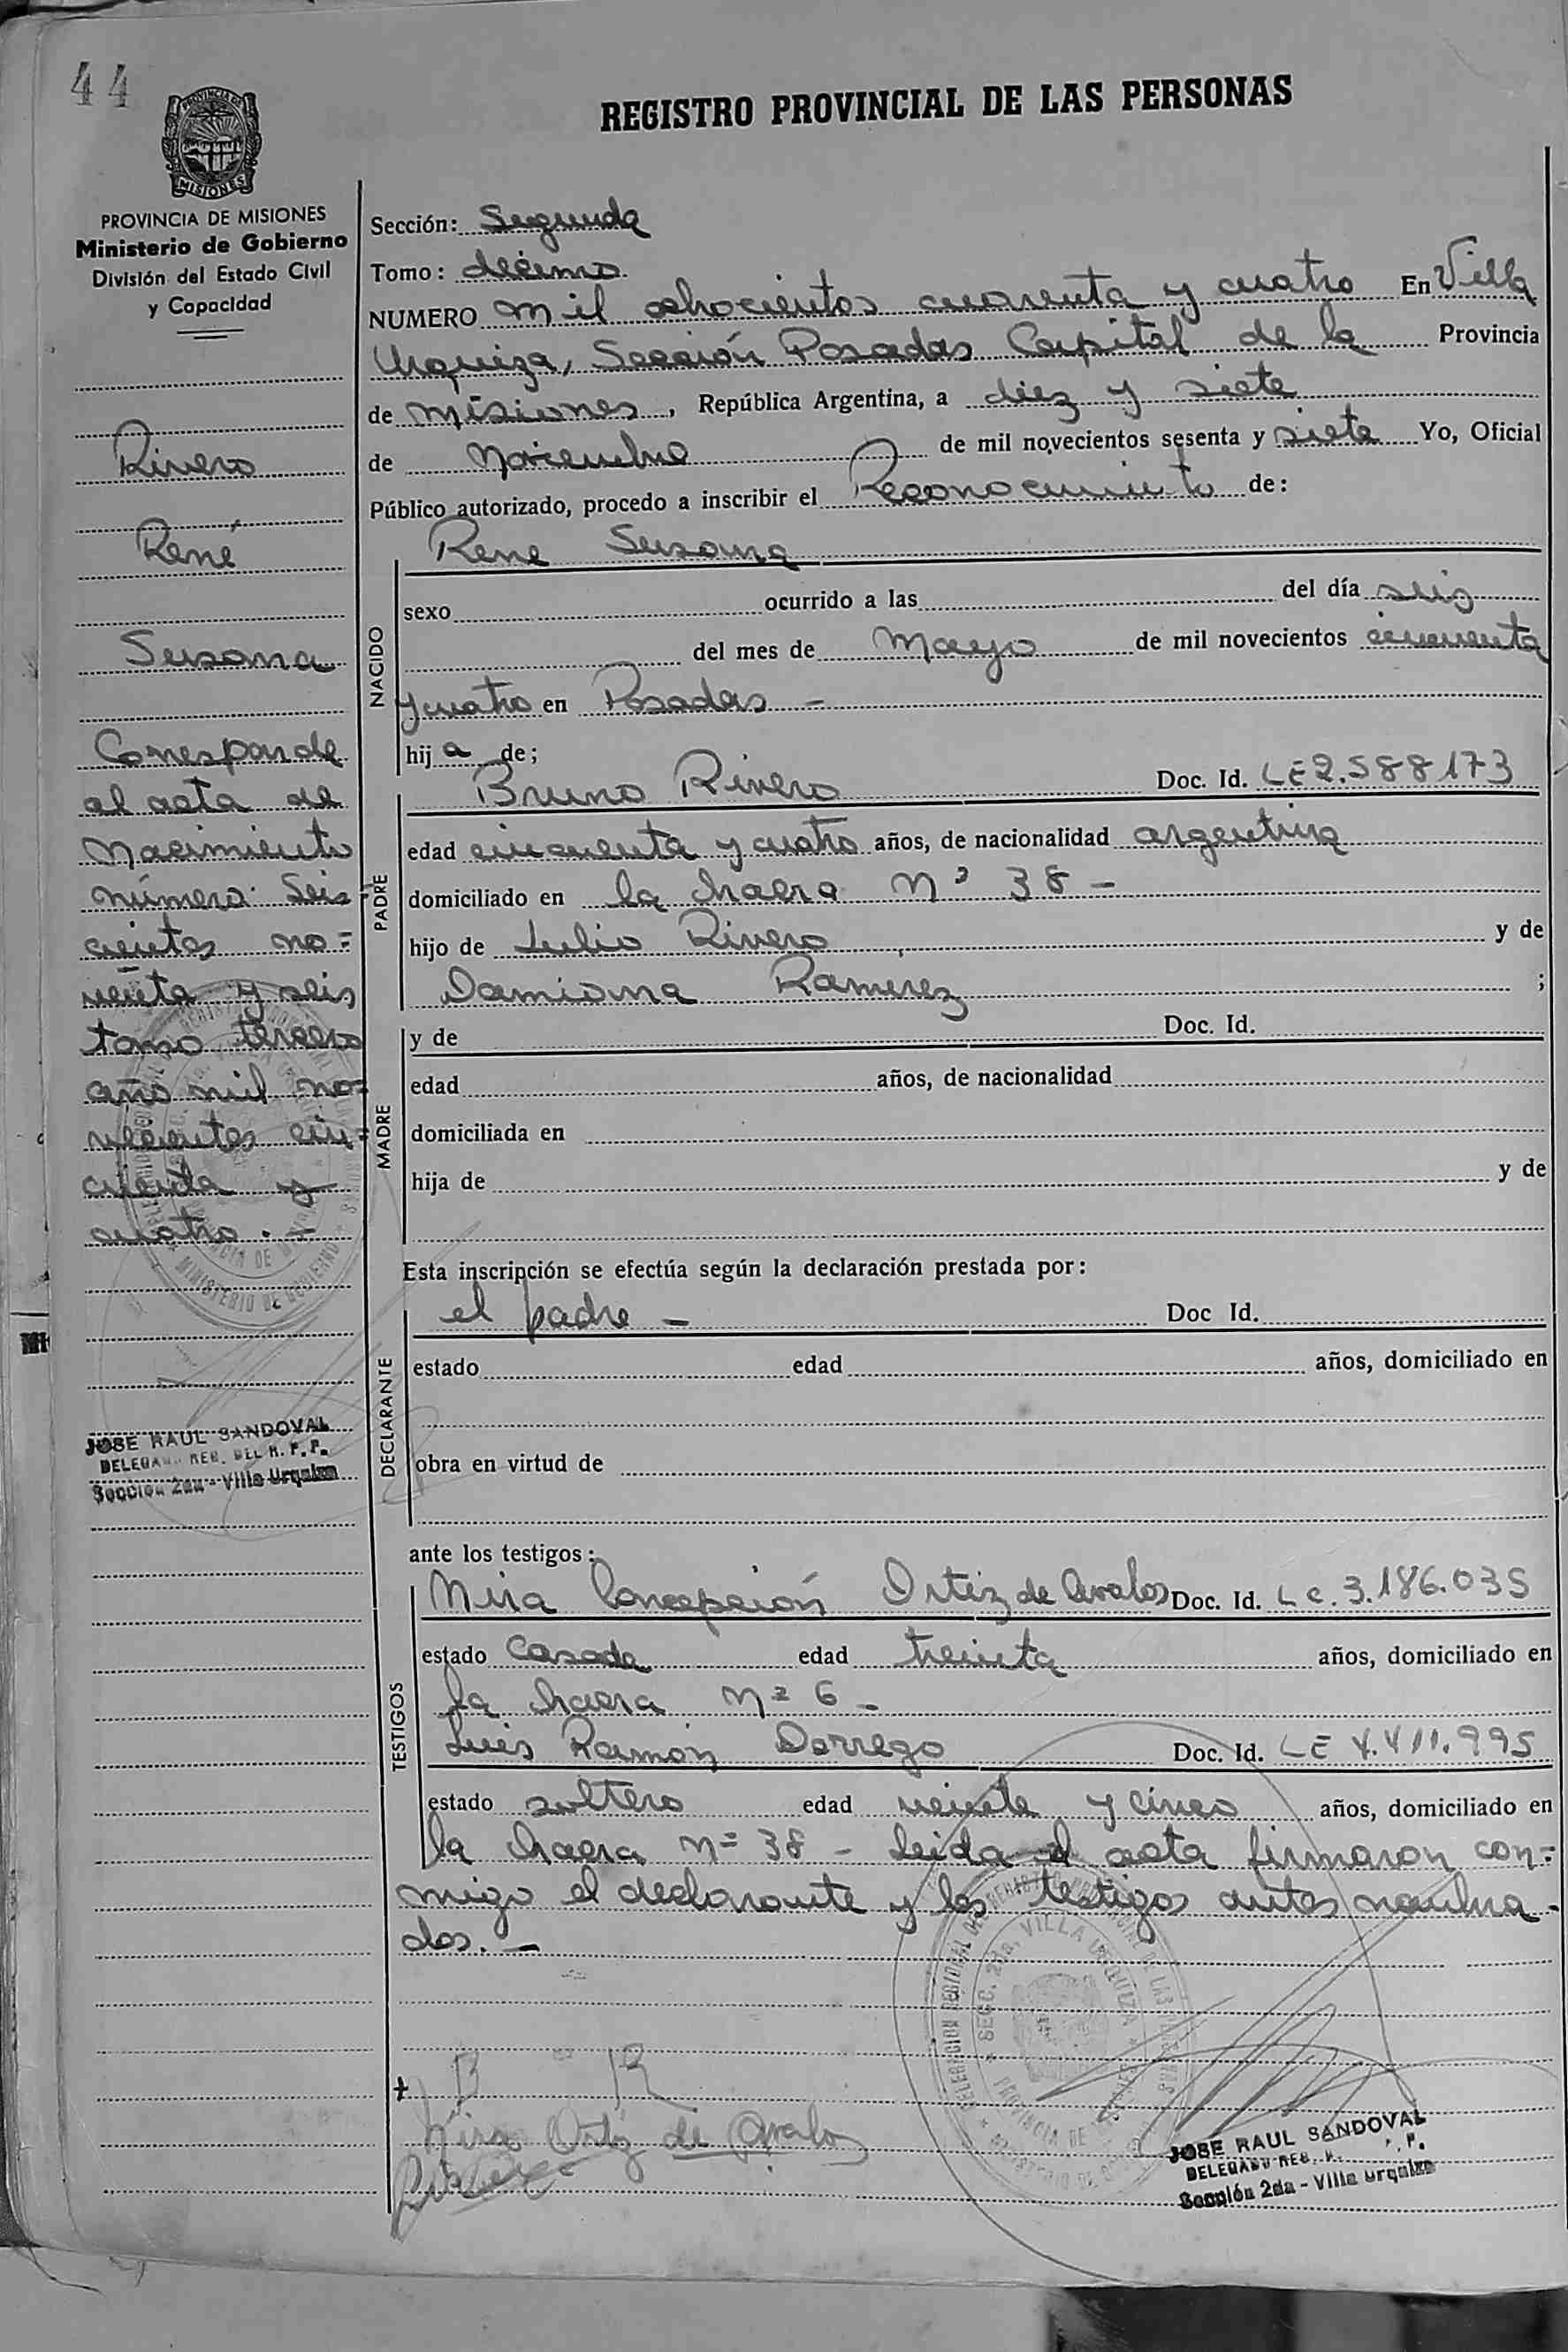 44
REGISTRO PROVINCIAL DE LAS PERSONAS
PROVINCIA DE MISIONES
Ministerio de Gobierno
División del Estado Civil
y Capacidad
Rivero
René
Susana
Corresponde
al acta de
Nacimiento
número: Seis=
cientos no=
venta y seis
tomo tercero
año mil no=
vecientos cin=
cuenta y
cuatro. -
JOSE RAUL SANDOVAL
DELEGADO REG. DEL R. P. P.
Sección 2da - Villa Urquiza
Sección: Segunda
Tomo: décimo
NUMERO mil ochocientos cuarenta y cuatro En Villa
Urquiza, Sección Posadas Capital de la Provincia
de Misiones, República Argentina, a diez y siete
de Noviembre de mil novecientos sesenta y siete Yo, Oficial
Público autorizado, procedo a inscribir el Reconocimiento de:
Rene Susana
NACIDO
sexo ocurrido a las del día seis
del mes de Mayo de mil novecientos cincuenta
y cuatro en Posadas -
hij a de;
PADRE
Bruno Rivero Doc. Id. LE 2.588.173
edad cincuenta y cuatro años, de nacionalidad argentina
domiciliado en la chacra Nº 38 -
hijo de Julio Rivero y de
Damiana Ramerez ;
MADRE
y de Doc. Id.
edad años, de nacionalidad
domiciliada en
hija de y de
Esta inscripción se efectúa según la declaración prestada por:
DECLARANTE
el padre - Doc Id.
estado edad años, domiciliado en
obra en virtud de
ante los testigos:
TESTIGOS
Nira Concepción Ortiz de Avalos Doc. Id. L C. 3.186.035
estado Casada edad treinta años, domiciliado en
la chacra Nº 6 -
Luis Ramón Dorrego Doc. Id. LE 4.411.995
estado soltero edad veinte y cinco años, domiciliado en
la chacra nº 38 - Leida el acta firmaron con=
migo el declarante y los testigos antes nombra-
dos. -
B R
Nira Ortiz de Avalos
SECC. 2da. VILLA URQUIZA
JOSE RAUL SANDOVAL
DELEGADO REG. R. P. P.
Sección 2da - Villa Urquiza